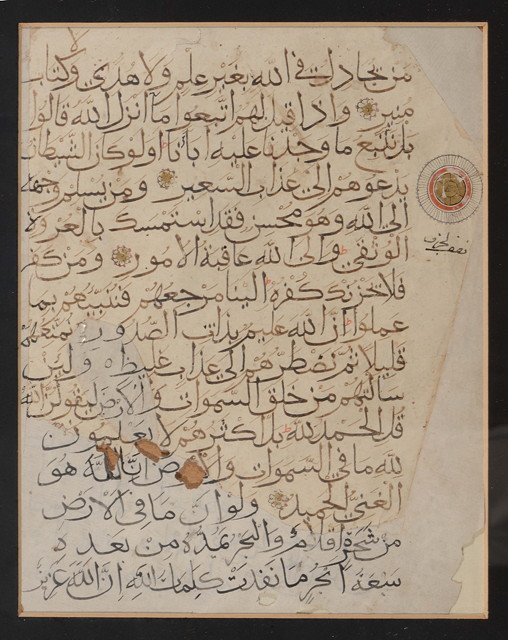 من يجادل في الله بغير علم ولا هدى ولا كتاب
منير واذا قيل لهم اتبعوا ما انزل الله قالوا
بل نتبع ما وجدنا عليه اباءنا اولو كان الشيطان
يدعوهم الى عذاب السعير ومن يسلم وجهه
الى الله وهو محسن فقد استمسك بالعروة
الوثقى والى الله عاقبة الامور ومن كفر
فلا يحزنك كفره الينا مرجعهم فننبئهم بما
عملوا ان الله عليم بذات الصدور نمتعهم
قليلا ثم نضطرهم الى عذاب غليظ ولئن
سالتهم من خلق السموات والارض ليقولن الله
قل الحمد لله بل اكثرهم لا يعلمون
لله ما في السموات والارض ان الله هو
الغني الحميد ولو ان ما في الارض
من شجرة اقلام والبحر يمده من بعده
سبعة ابحر ما نفدت كلمات الله ان الله عزيز